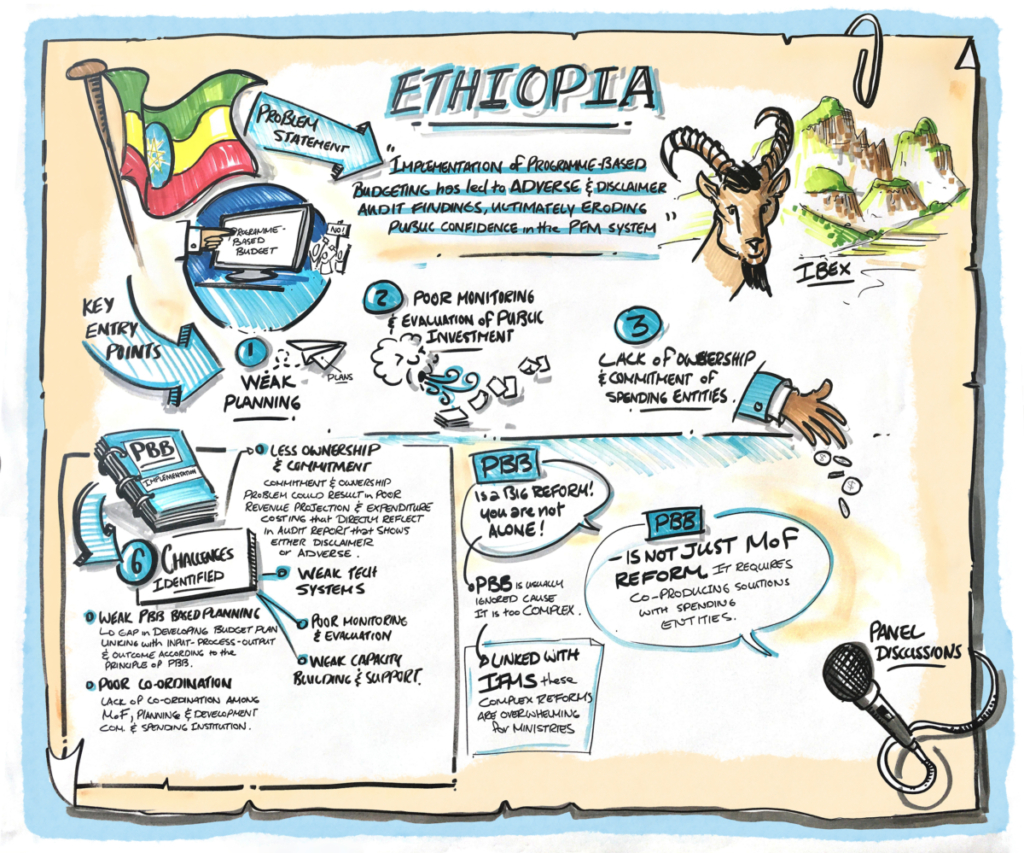 ETHIOPIA
PROBLEM
STATEMENT
"IMPLEMENTATION of PROGRAMME-BASED
BUDGETING has led to ADVERSE & DISCLAIMER
AUDIT FINDINGS, ULTIMATELY ERODING
PUBLIC CONFIDENCE in the PFM SYSTEM"
PROGRAMME-
BASED
BUDGET
NO!
IBEX
KEY
ENTRY
POINTS
1
WEAK
PLANNING
PLANS
2
POOR MONITORING
& EVALUATION of PUBLIC
INVESTMENT
3
LACK of OWNERSHIP
& COMMITMENT of
SPENDING ENTITIES.
PBB
IMPLEMENTATION
6 CHALLENGES
IDENTIFIED
LESS OWNERSHIP
& COMMITMENT
COMMITMENT & OWNERSHIP
PROBLEM COULD RESULT in POOR
REVENUE PROJECTION & EXPENDITURE
COSTING that DIRECTLY REFLECT
in AUDIT REPORT that SHOWS
EITHER DISCLAIMER
or ADVERSE.
WEAK TECH
SYSTEMS
POOR MONITORING
& EVALUATION
WEAK CAPACITY
BUILDING & SUPPORT.
WEAK PBB BASED PLANNING
GAP in DEVELOPING BUDGET PLAN
LINKING with INPUT-PROCESS-OUTPUT
& OUTCOME ACCORDING to the
PRINCIPLE of PBB.
POOR CO-ORDINATION
LACK of CO-ORDINATION AMONG
MoF, PLANNING & DEVELOPMENT
COM. & SPENDING INSTITUTION.
PBB
IS a BIG REFORM!
you are not
ALONE!
PBB is USUALLY
IGNORED CAUSE
IT is too COMPLEX.
LINKED WITH
IFMS these
COMPLEX REFORMS
ARE OVERWHELMING
for MINISTRIES
PBB
- IS NOT JUST MoF
REFORM. IT REQUIRES
CO-PRODUCING SOLUTIONS
WITH SPENDING
ENTITIES.
PANEL
DISCUSSIONS